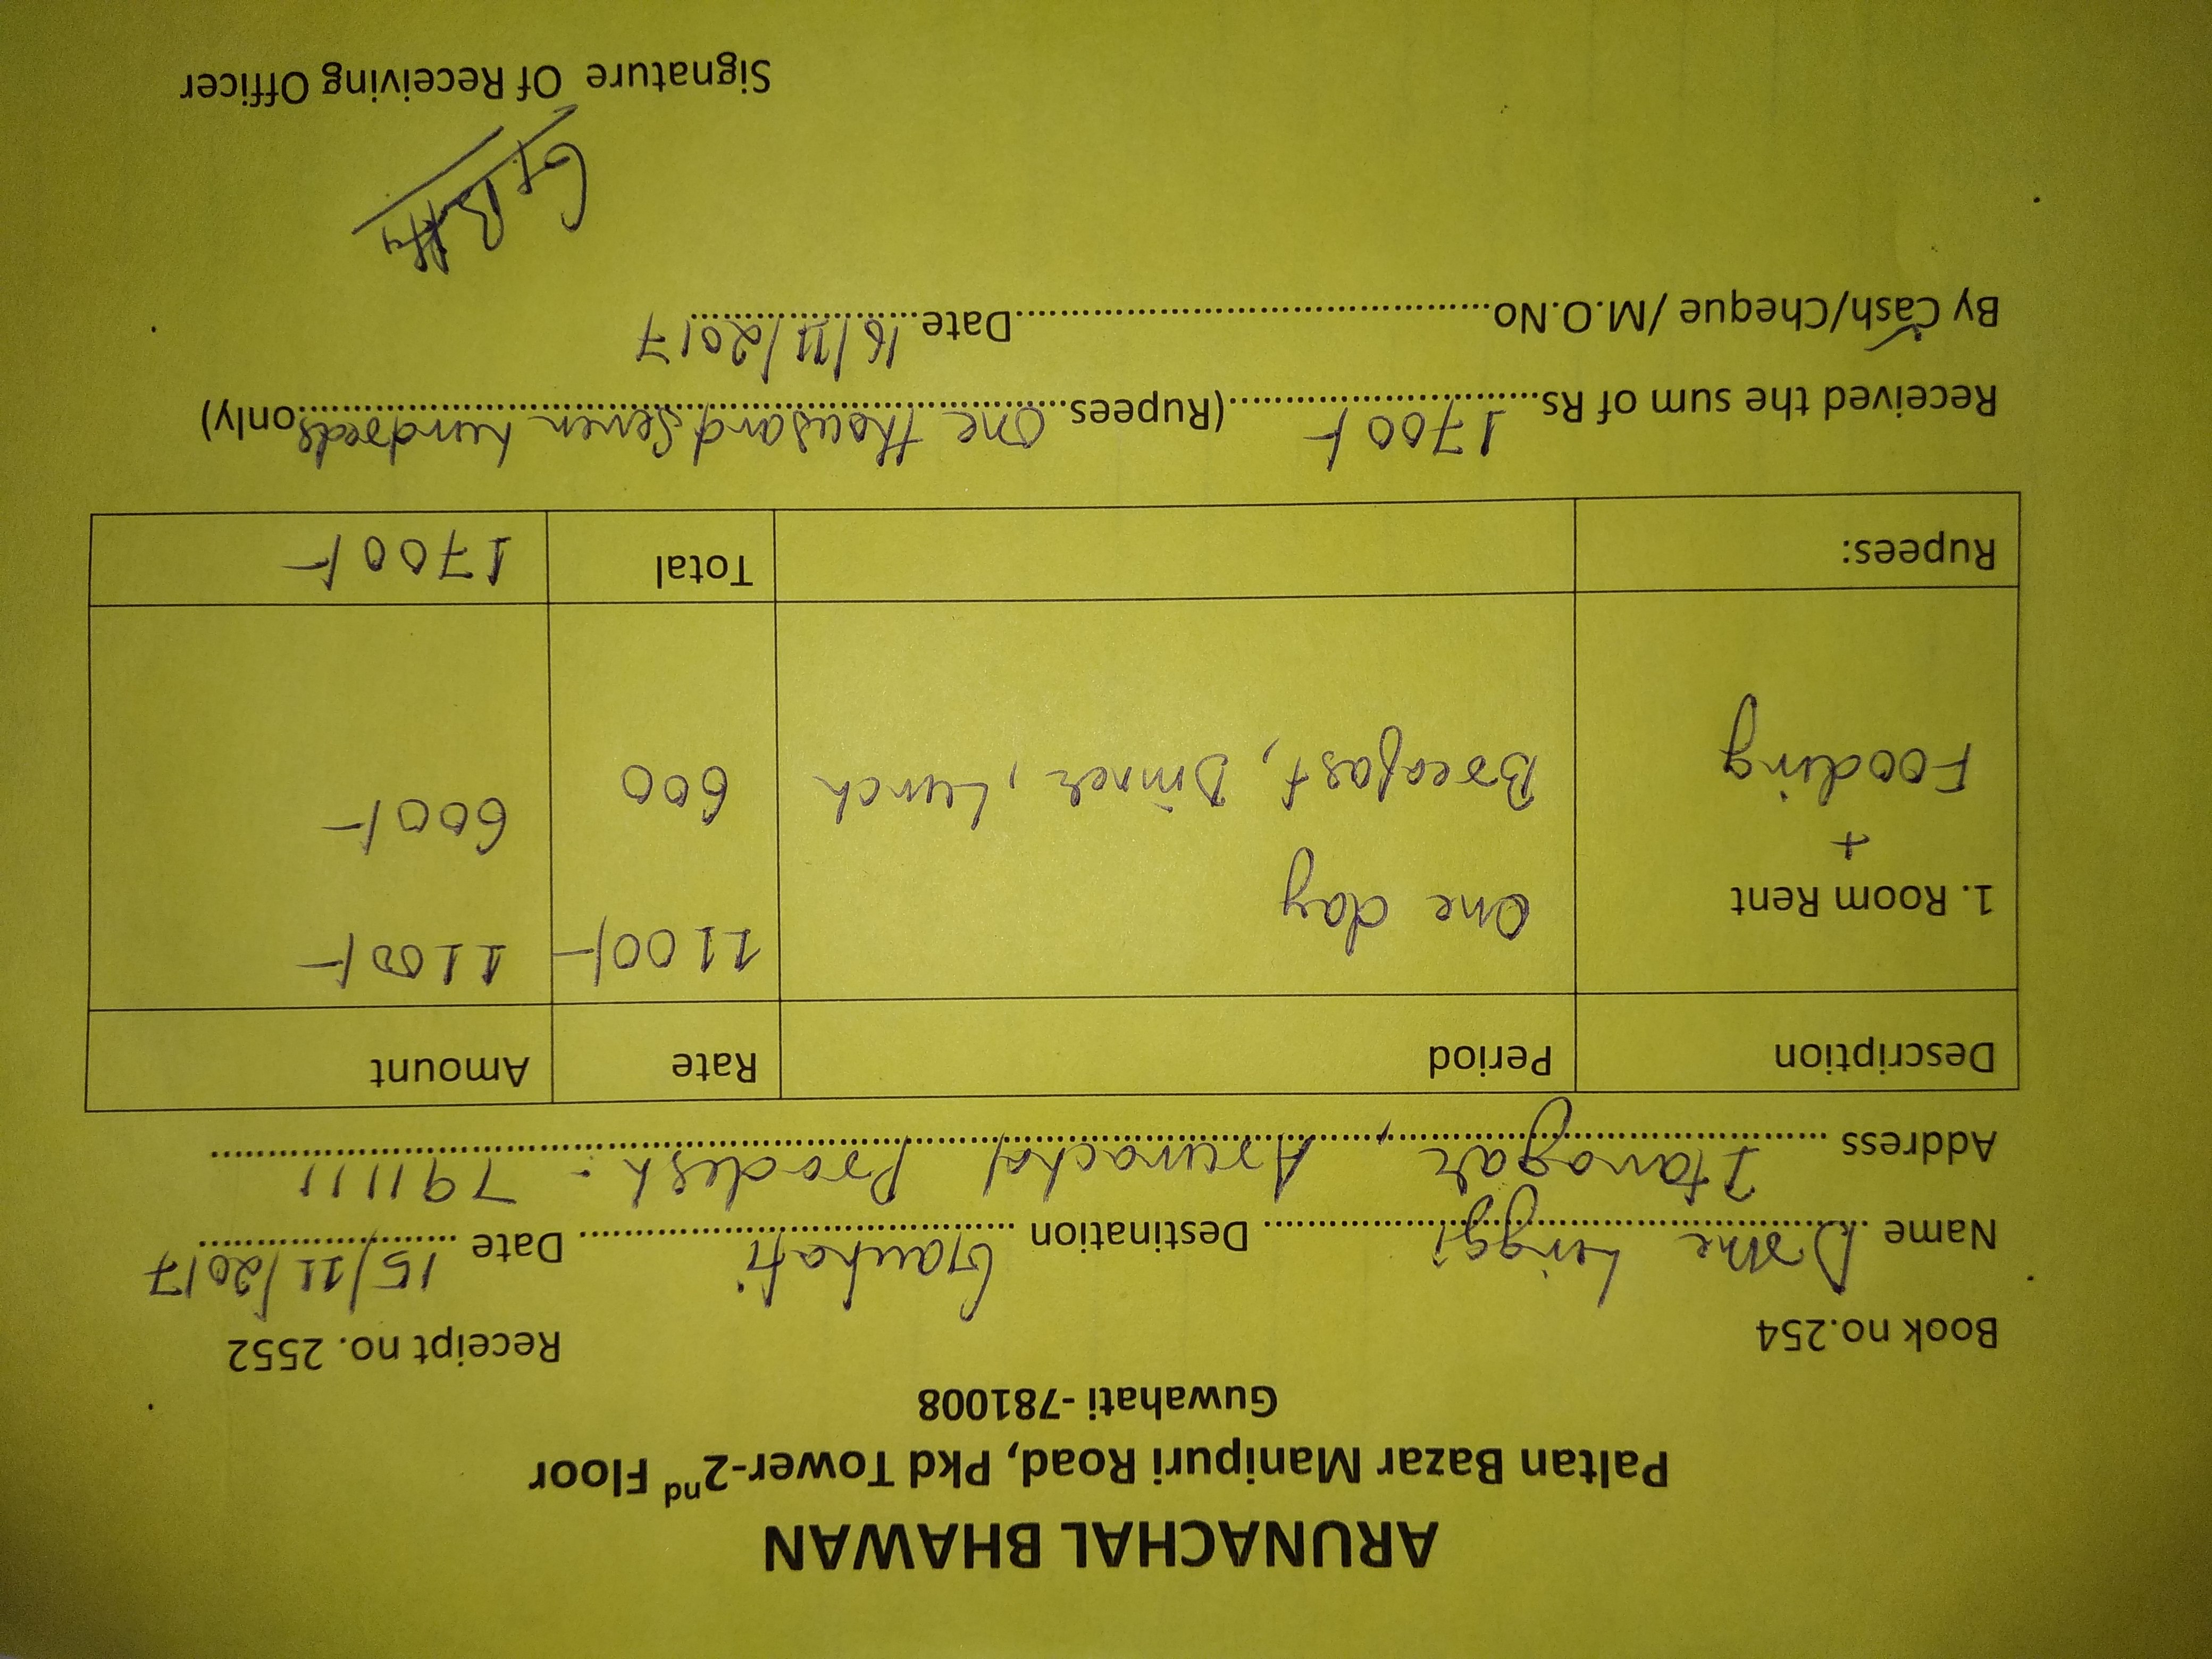 ARUNACHAL BHAWAN
Paltan Bazar Manipuri Road, Pkd Tower-2nd Floor
Guwahati -781008
Book no.254 Receipt no. 2552
Name Dome Linggi Destination Gauhati Date 15/11/2017
Address Itanagar, Arunachal Pradesh - 791111
Description Period Rate Amount
1. Room Rent One day 1100/- 1100/-
+
Fooding Breafast, Dinner, Lunch 600 600/-
Rupees: Total 1700/-
Received the sum of Rs 1700/- (Rupees One thousand Seven hundreds only)
By Cash/Cheque /M.O.No Date 16/11/2017
Signature Of Receiving Officer